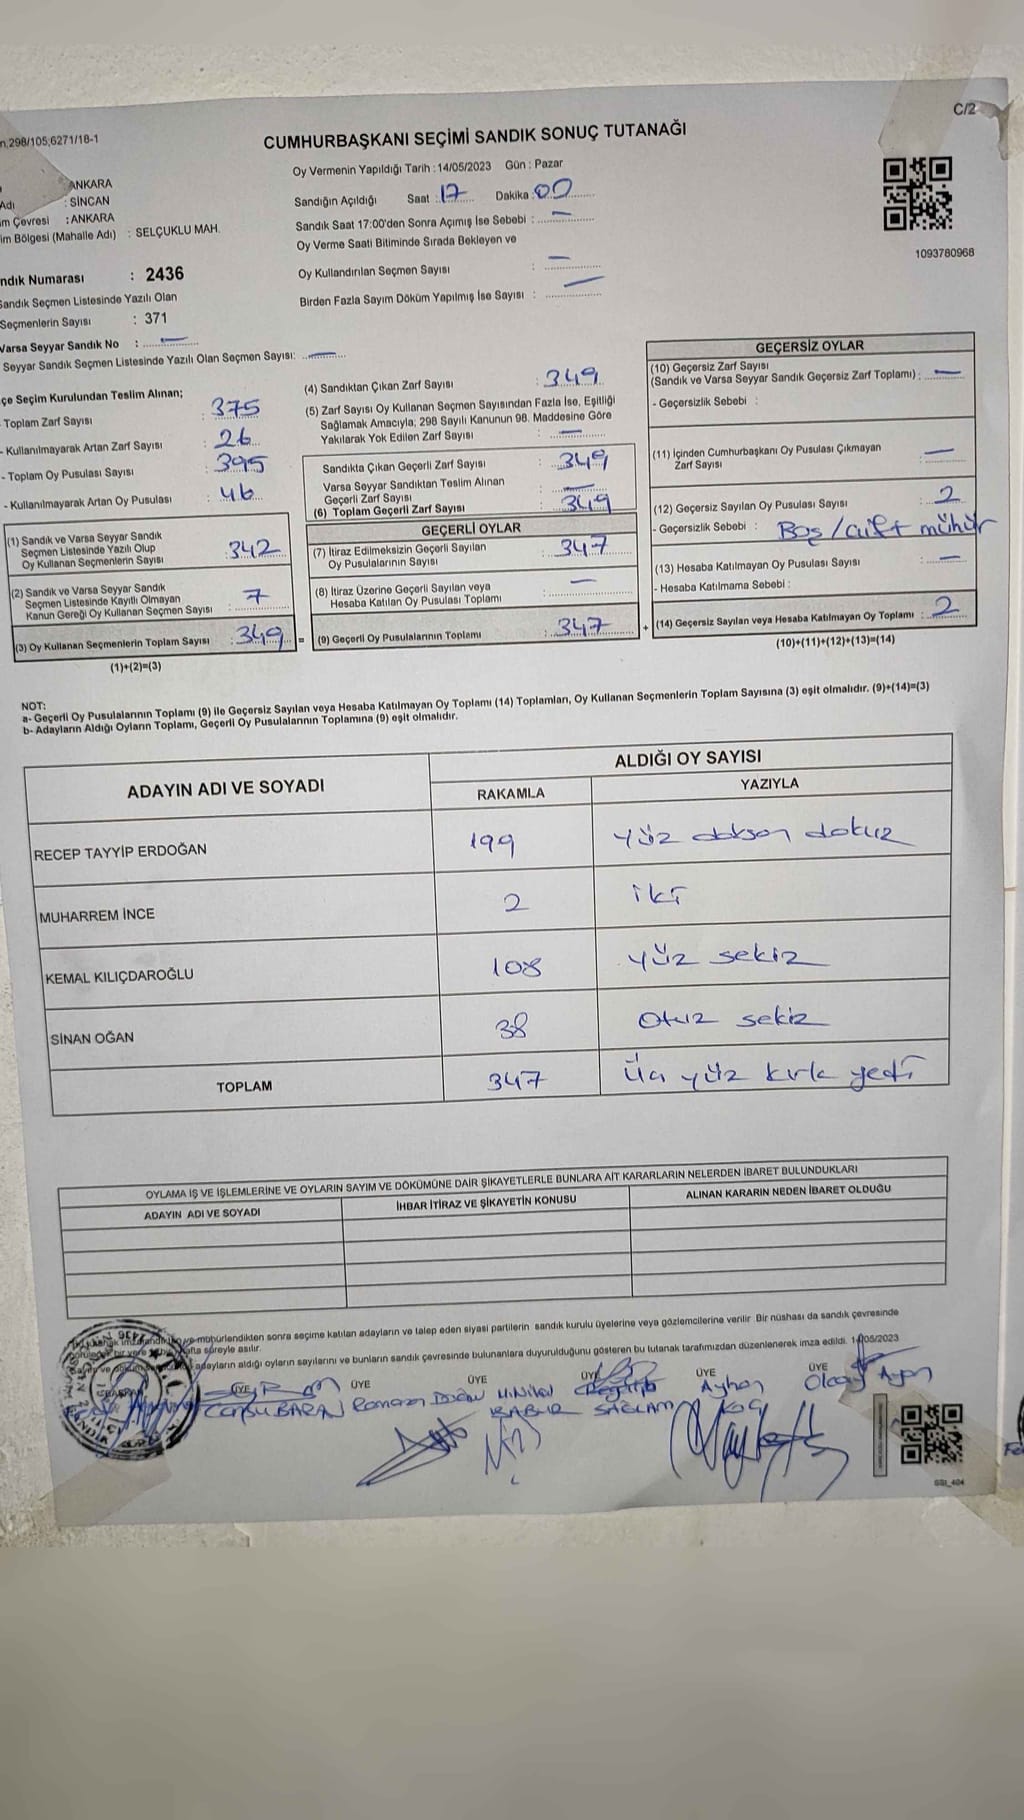 C/2
n.298/105;6271/18-1
CUMHURBAŞKANI SEÇİMİ SANDIK SONUÇ TUTANAĞI
ANKARA
Adı : SİNCAN
m Çevresi : ANKARA
im Bölgesi (Mahalle Adı) : SELÇUKLU MAH.
ndık Numarası : 2436
Sandık Seçmen Listesinde Yazılı Olan
Seçmenlerin Sayısı : 371
Varsa Seyyar Sandık No : —
Seyyar Sandık Seçmen Listesinde Yazılı Olan Seçmen Sayısı: —
Oy Vermenin Yapıldığı Tarih : 14/05/2023 Gün : Pazar
Sandığın Açıldığı Saat : 17 Dakika : 00
Sandık Saat 17:00'den Sonra Açımış İse Sebebi : —
Oy Verme Saati Bitiminde Sırada Bekleyen ve
Oy Kullandırılan Seçmen Sayısı : —
Birden Fazla Sayım Döküm Yapılmış İse Sayısı : —
1093780968
çe Seçim Kurulundan Teslim Alınan;
- Toplam Zarf Sayısı : 375
- Kullanılmayarak Artan Zarf Sayısı : 26
- Toplam Oy Pusulası Sayısı : 395
- Kullanılmayarak Artan Oy Pusulası : 46
(1) Sandık ve Varsa Seyyar Sandık
Seçmen Listesinde Yazılı Olup
Oy Kullanan Seçmenlerin Sayısı : 342
(2) Sandık ve Varsa Seyyar Sandık
Seçmen Listesinde Kayıtlı Olmayan
Kanun Gereği Oy Kullanan Seçmen Sayısı : 7
(3) Oy Kullanan Seçmenlerin Toplam Sayısı : 349 =
(1)+(2)=(3)
(4) Sandıktan Çıkan Zarf Sayısı : 349
(5) Zarf Sayısı Oy Kullanan Seçmen Sayısından Fazla İse, Eşitliği
Sağlamak Amacıyla; 298 Sayılı Kanunun 98. Maddesine Göre
Yakılarak Yok Edilen Zarf Sayısı : —
Sandıkta Çıkan Geçerli Zarf Sayısı : 349
Varsa Seyyar Sandıktan Teslim Alınan
Geçerli Zarf Sayısı : —
(6) Toplam Geçerli Zarf Sayısı : 349
GEÇERLİ OYLAR
(7) İtiraz Edilmeksizin Geçerli Sayılan
Oy Pusulalarının Sayısı : 347
(8) İtiraz Üzerine Geçerli Sayılan veya
Hesaba Katılan Oy Pusulası Toplamı : —
(9) Geçerli Oy Pusulalarının Toplamı : 347 +
GEÇERSİZ OYLAR
(10) Geçersiz Zarf Sayısı
(Sandık ve Varsa Seyyar Sandık Geçersiz Zarf Toplamı) : —
- Geçersizlik Sebebi :
(11) İçinden Cumhurbaşkanı Oy Pusulası Çıkmayan
Zarf Sayısı : —
(12) Geçersiz Sayılan Oy Pusulası Sayısı : 2
- Geçersizlik Sebebi : Boş / Çift mühür
(13) Hesaba Katılmayan Oy Pusulası Sayısı : —
- Hesaba Katılmama Sebebi :
(14) Geçersiz Sayılan veya Hesaba Katılmayan Oy Toplamı : 2
(10)+(11)+(12)+(13)=(14)
NOT:
a- Geçerli Oy Pusulalarının Toplamı (9) ile Geçersiz Sayılan veya Hesaba Katılmayan Oy Toplamı (14) Toplamları, Oy Kullanan Seçmenlerin Toplam Sayısına (3) eşit olmalıdır. (9)+(14)=(3)
b- Adayların Aldığı Oyların Toplamı, Geçerli Oy Pusulalarının Toplamına (9) eşit olmalıdır.
ADAYIN ADI VE SOYADI ALDIĞI OY SAYISI
RAKAMLA YAZIYLA
RECEP TAYYİP ERDOĞAN 199 yüz doksan dokuz
MUHARREM İNCE 2 iki
KEMAL KILIÇDAROĞLU 108 yüz sekiz
SİNAN OĞAN 38 otuz sekiz
TOPLAM 347 üç yüz kırk yedi
OYLAMA İŞ VE İŞLEMLERİNE VE OYLARIN SAYIM VE DÖKÜMÜNE DAİR ŞİKAYETLERLE BUNLARA AİT KARARLARIN NELERDEN İBARET BULUNDUKLARI
ADAYIN ADI VE SOYADI İHBAR İTİRAZ VE ŞİKAYETİN KONUSU ALINAN KARARIN NEDEN İBARET OLDUĞU
mühürlendikten sonra seçime katılan adayların ve talep eden siyasi partilerin sandık kurulu üyelerine veya gözlemcilerine verilir. Bir nüshası da sandık çevresinde
süreyle asılır.
adayların aldığı oyların sayılarını ve bunların sandık çevresinde bulunanlara duyurulduğunu gösteren bu tutanak tarafımızdan düzenlenerek imza edildi. 14/05/2023
ÜYE ÜYE ÜYE ÜYE ÜYE ÜYE
BARAN Ramazan BABUR SAĞLAM Ayhan KOÇ Olcay
SSI_404